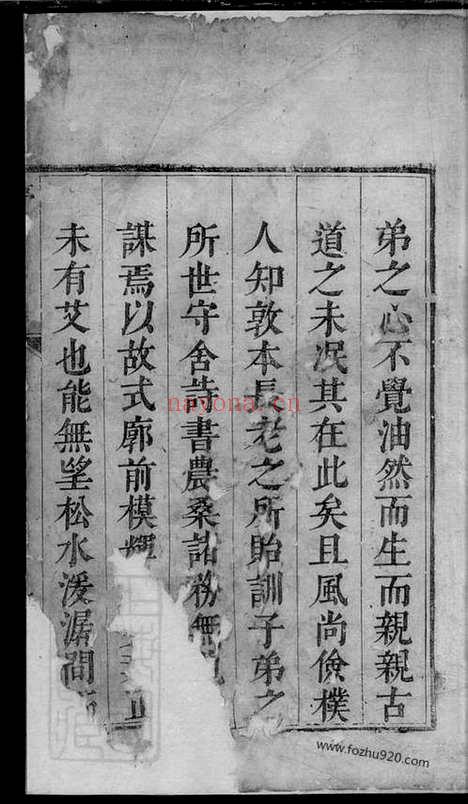 弟之心不覺油然而生而親親古
道之未泯其在此矣且風尚儉樸
人知敦本長老之所貽訓子弟之
所世守舍詩書農桑諸務無
謀焉以故式廓前模
未有艾也能無望松水湲潺間
nayona.cn
www.fozhu920.com